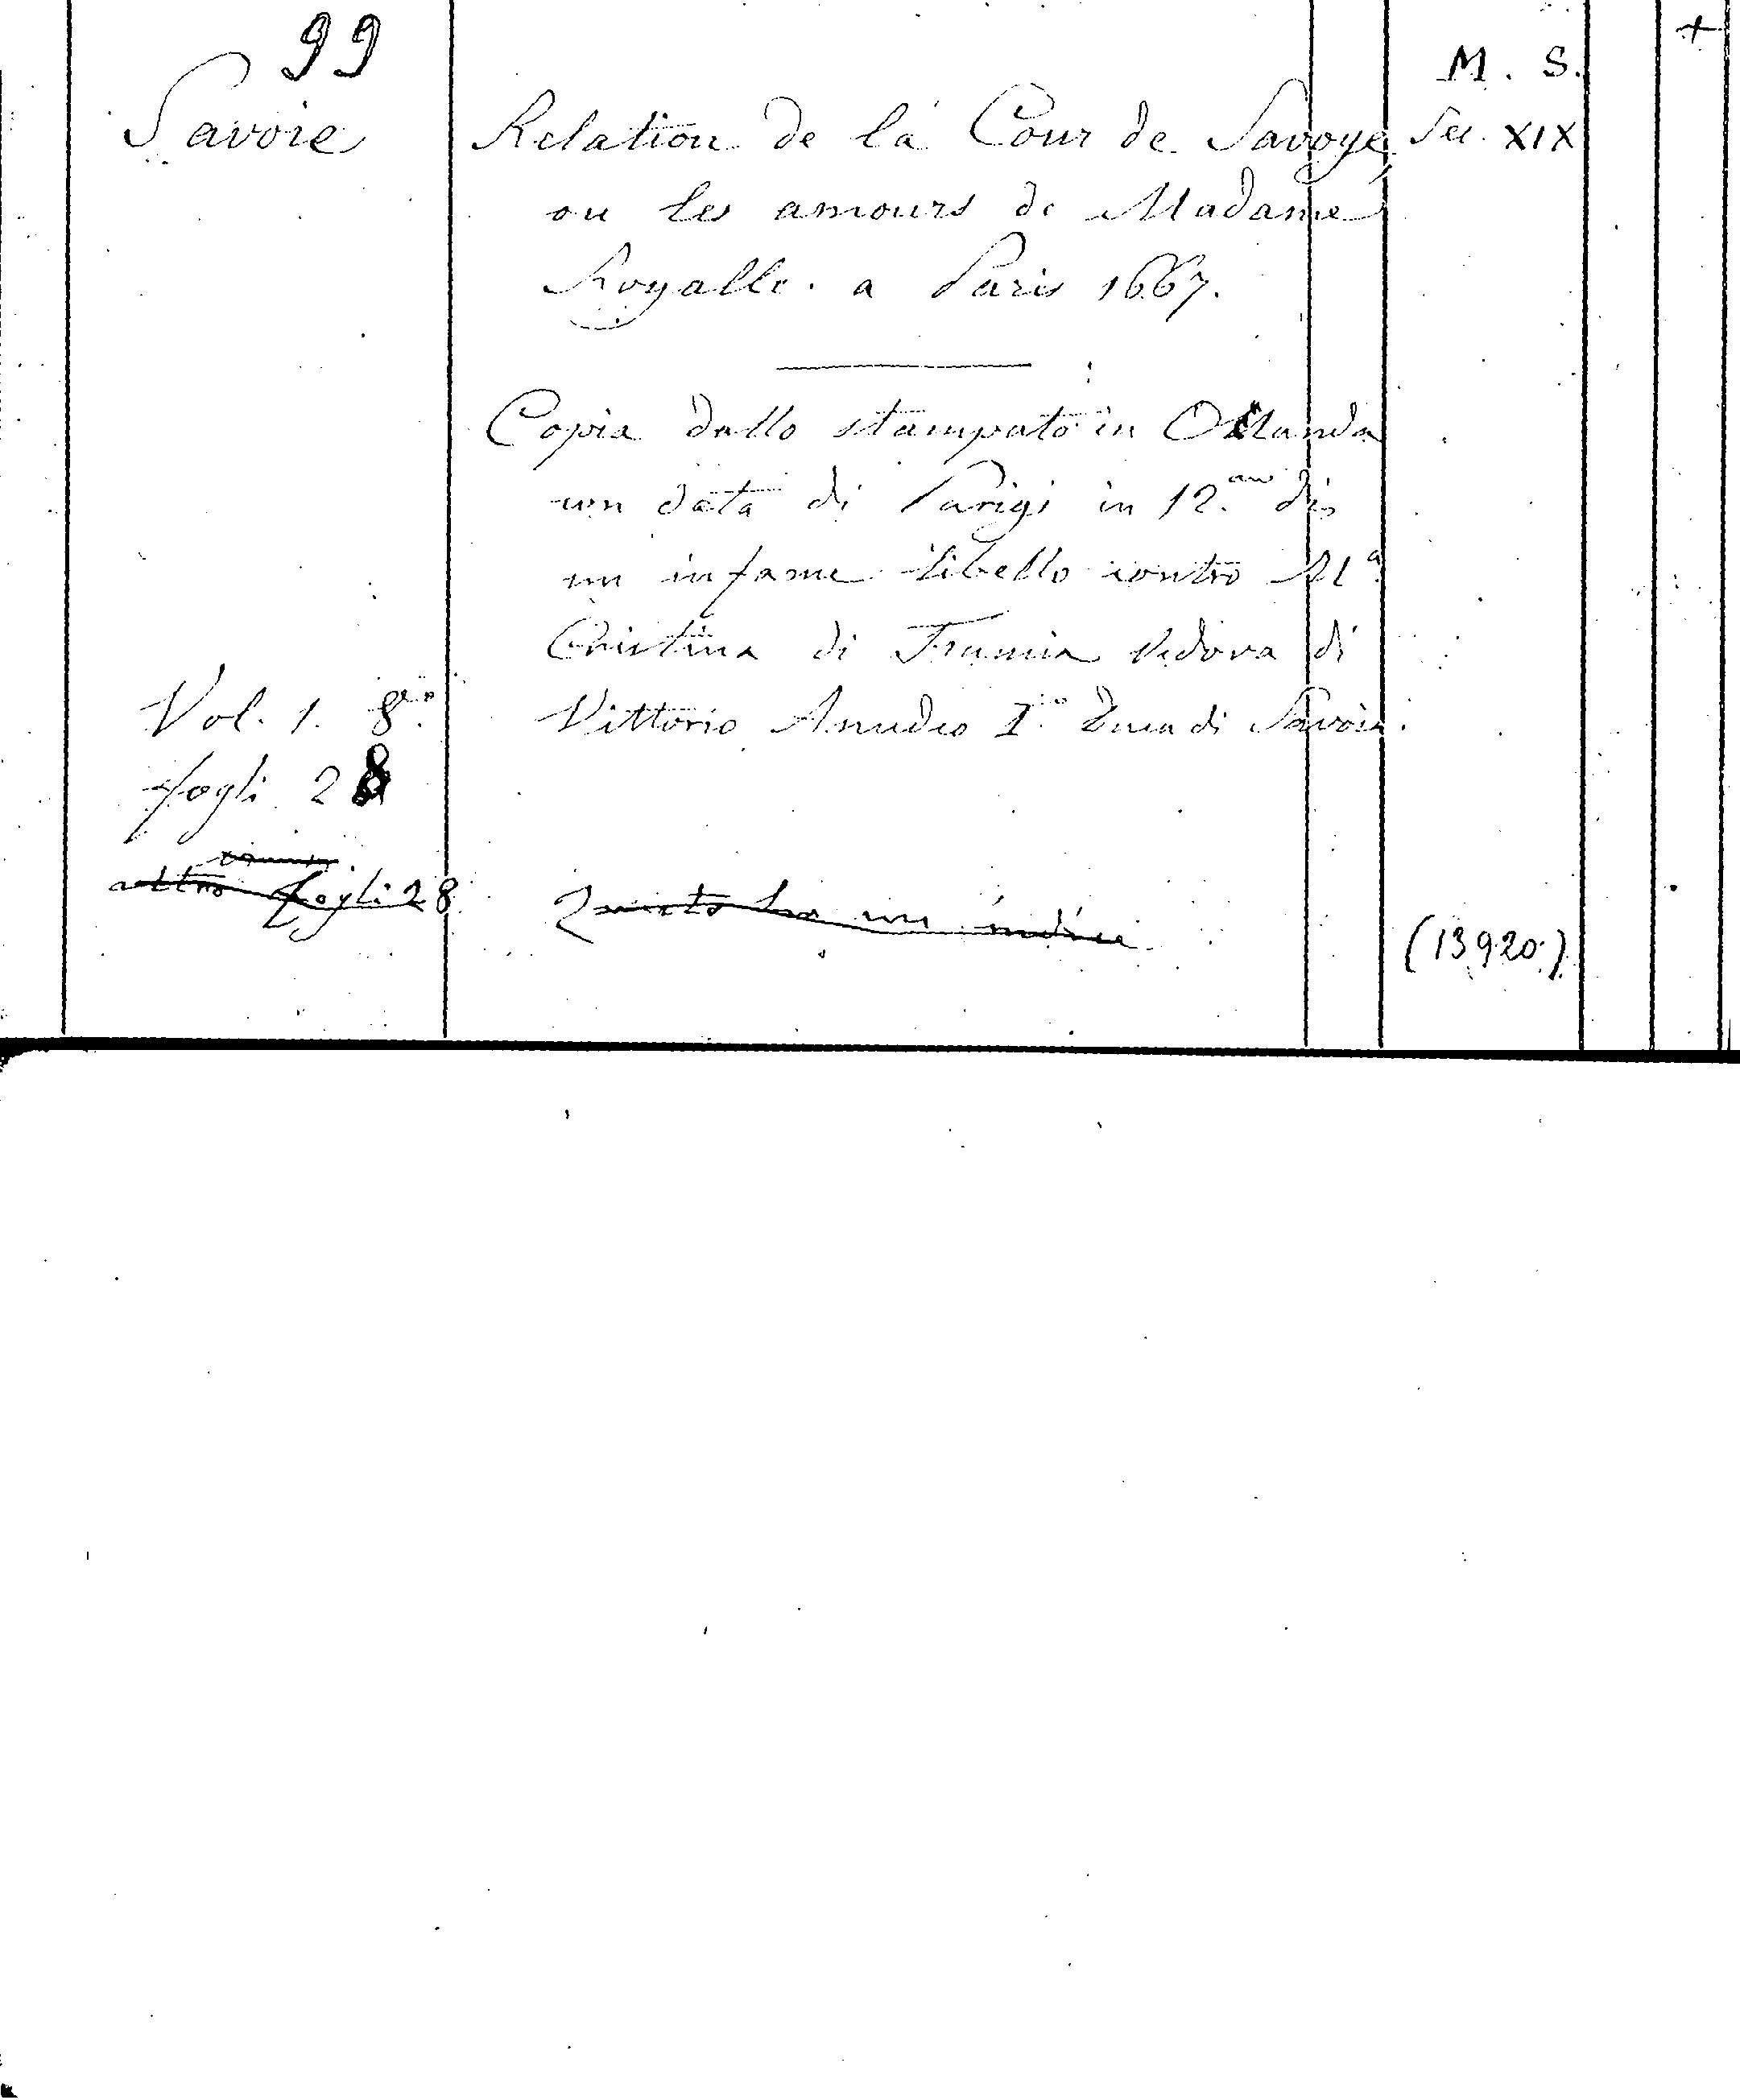 99
M. S. +
Savoie
Relation de la Cour de Savoye Sec. XIX
ou les amours de Madame
Royalle. a Paris 1667.
Copia dallo stampato in Ollanda
con data di Parigi in 12.mo di
un infame libello contro Ma.
Cristina di Francia Vedova di
Vol. 1. 8.vo
Vittorio Amedeo I.o Duca di Savoia.
fogli 28
altro fogli 28
Questo ha un indice
(13920)